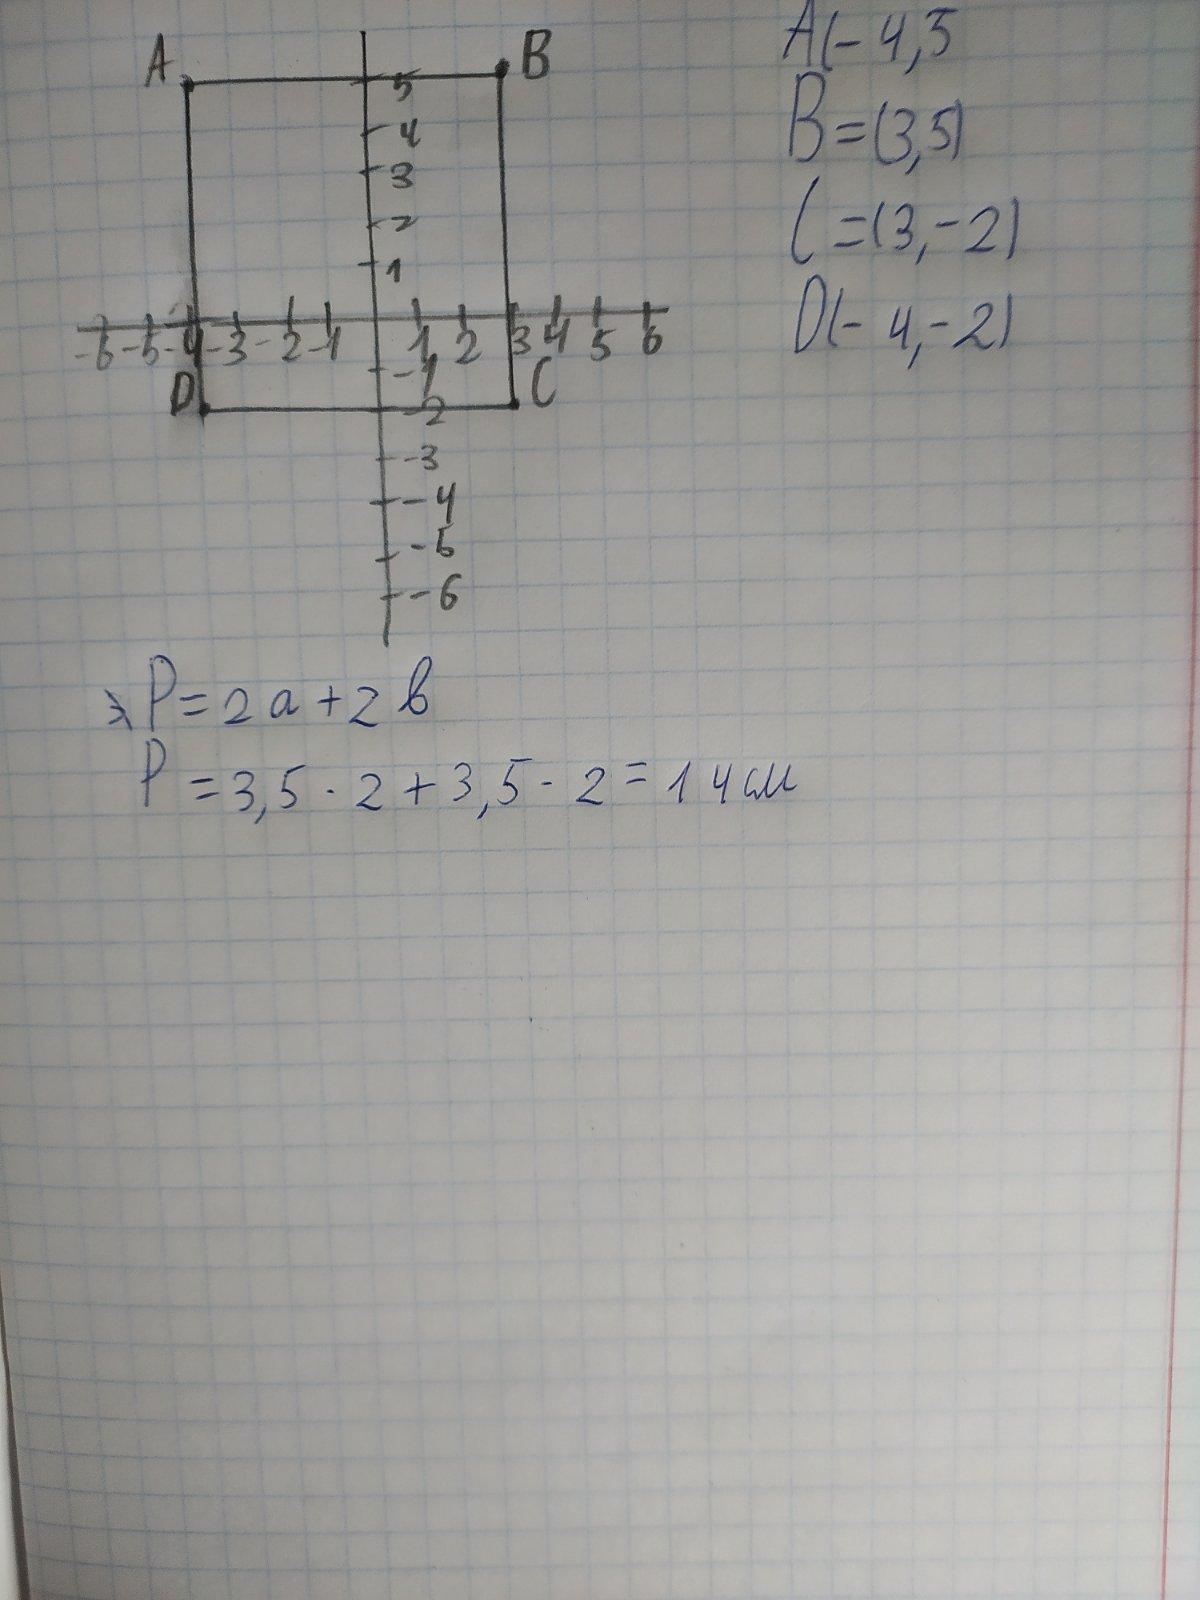 A B
5
4
3
2
1
-6 -5 -4 -3 -2 -1 1 2 3 4 5 6
-1
D C
-2
-3
-4
-5
-6
A(-4,5
B=(3,5)
C=(3,-2)
D(-4,-2)
P=2a+2b
P=3,5·2+3,5·2=14см